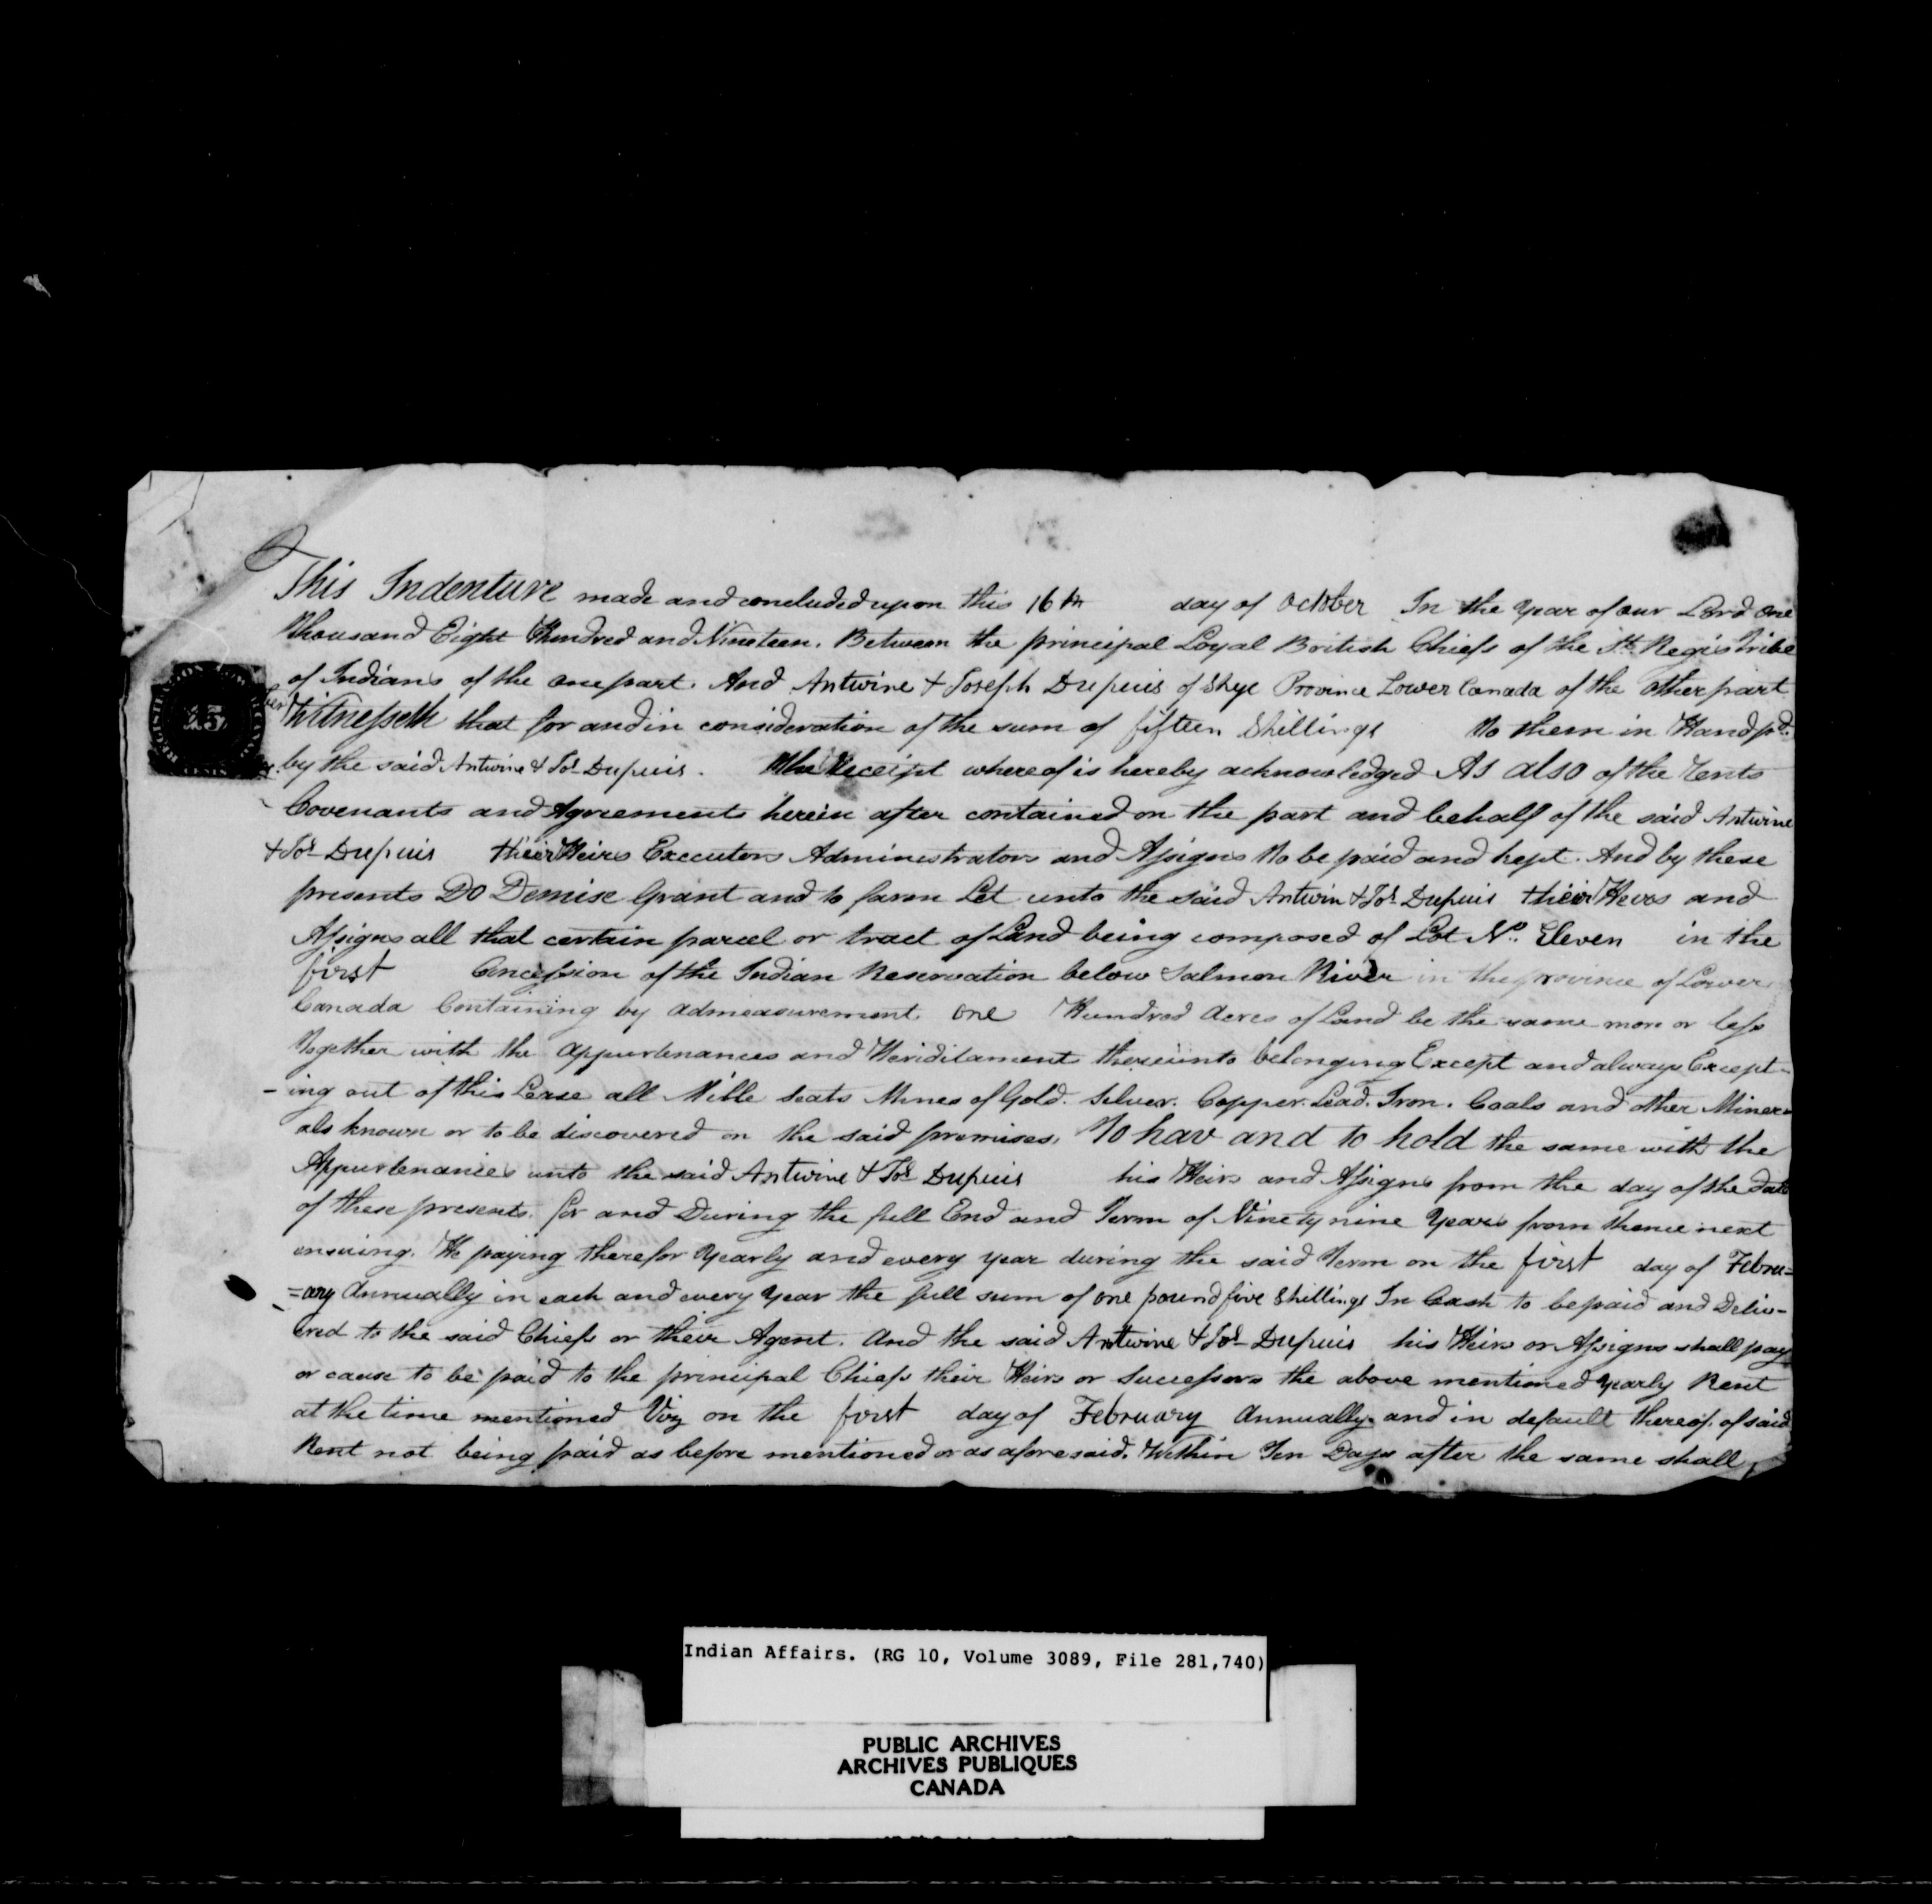 This Indenture made and concluded upon this 16th day of October In the Year of our Lord One
Thousand Eight Hundred and Nineteen. Between the principal Loyal British Chiefs of the St. Regis Tribe
of Indians of the one part. And Antwine & Joseph Dupuis of Skye Province Lower Canada of the Other part
Witnesseth that for and in consideration of the sum of fifteen Shillings to them in Hand pd.
by the said Antwine & Jos. Dupuis. The Receipt whereof is hereby acknowledged As also of the Rents
Covenants and Agreements herein after contained on the part and behalf of the said Antwine
& Jos. Dupuis their Heirs Executors Administrators and Assigns to be paid and kept. And by these
presents Do Demise Grant and to farm Let unto the said Antwin & Jos. Dupuis their Heirs and
Assigns all that certain parcel or tract of Land being composed of Lot No. Eleven in the
first Concession of the Indian Reservation below Salmon River in the province of Lower
Canada Containing by admeasurement one Hundred Acres of Land be the same more or less
Together with the appurtenances and Heriditaments thereunto belonging Except and always Except-
-ing out of this Lease all Mille Seats Mines of Gold. Silver. Copper. Lead. Iron. Coals and other Miner-
als known or to be discovered on the said premises. To hav and to hold the same with the
Appurtenances unto the said Antwine & Jos. Dupuis his Heirs and Assigns from the day of the date
of these presents. for and During the full End and Term of Ninety nine Years from thence next
ensuing. He paying therefor Yearly and every year during the said Term on the first day of Febru=
=ary Annually in each and every Year the full sum of one pound five Shillings In Cash to be paid and Deliv-
ered to the said Chiefs or their Agent. And the said Antwine & Jos. Dupuis his Heirs or Assigns shall pay
or cause to be paid to the principal Chiefs their Heirs or Successors the above mentioned Yearly Rent
at the time mentioned Viz on the first day of February Annually and in default thereof. of said
Rent not being paid as before mentioned or as aforesaid. Within Ten Days after the same shall
REGISTRATION
15
CENTS
Indian Affairs. (RG 10, Volume 3089, File 281,740)
PUBLIC ARCHIVES
ARCHIVES PUBLIQUES
CANADA